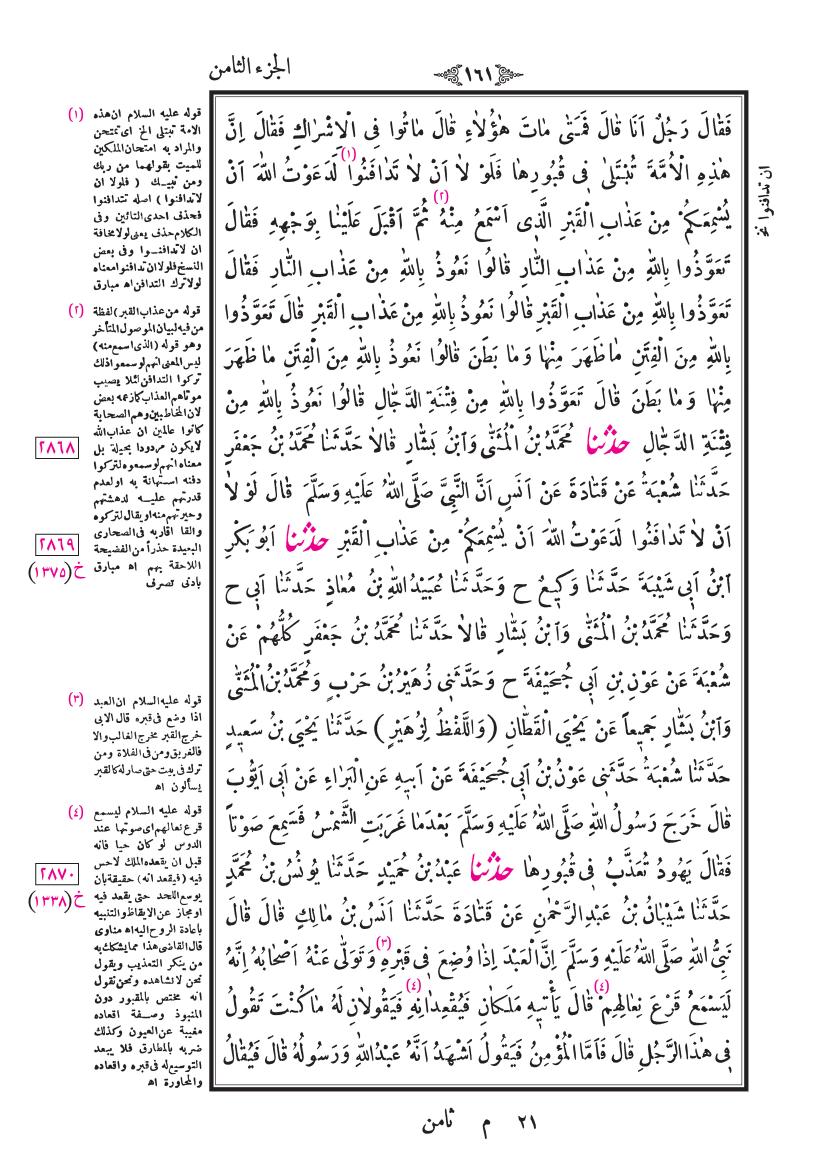 ١٦١
الجزء الثامن
فَقَالَ رَجُلٌ اَنَا قَالَ فَمَتٰى مَاتَ هٰؤُلاٰءِ قَالَ مٰاتُوا فِى الْاِشْرٰاكِ فَقَالَ اِنَّ
هٰذِهِ الْاُمَّةَ تُبْتَلٰى فِى قُبُورِهٰا فَلَوْ لاٰ اَنْ لاٰ تَدٰافَنُوا (١) لَدَعَوْتُ اللّٰهَ اَنْ
يُسْمِعَكُمْ مِنْ عَذٰابِ الْقَبْرِ الَّذِى اَسْمَعُ مِنْهُ (٢) ثُمَّ اَقْبَلَ عَلَيْنٰا بِوَجْهِهِ فَقَالَ
تَعَوَّذُوا بِاللّٰهِ مِنْ عَذٰابِ النّٰارِ قٰالُوا نَعُوذُ بِاللّٰهِ مِنْ عَذٰابِ النّٰارِ فَقٰالَ
تَعَوَّذُوا بِاللّٰهِ مِنْ عَذٰابِ الْقَبْرِ قٰالُوا نَعُوذُ بِاللّٰهِ مِنْ عَذٰابِ الْقَبْرِ قٰالَ تَعَوَّذُوا
بِاللّٰهِ مِنَ الْفِتَنِ مٰا ظَهَرَ مِنْهٰا وَمٰا بَطَنَ قٰالُوا نَعُوذُ بِاللّٰهِ مِنَ الْفِتَنِ مٰا ظَهَرَ
مِنْهٰا وَمٰا بَطَنَ قٰالَ تَعَوَّذُوا بِاللّٰهِ مِنْ فِتْنَةِ الدَّجّٰالِ قٰالُوا نَعُوذُ بِاللّٰهِ مِنْ
فِتْنَةِ الدَّجّٰالِ حدثنا مُحَمَّدُ بْنُ الْمُثَنّٰى وَابْنُ بَشّٰارٍ قٰالاٰ حَدَّثَنٰا مُحَمَّدُ بْنُ جَعْفَرٍ
حَدَّثَنٰا شُعْبَةُ عَنْ قَتٰادَةَ عَنْ اَنَسٍ اَنَّ النَّبِىَّ صَلَّى اللّٰهُ عَلَيْهِ وَسَلَّمَ قٰالَ لَوْ لاٰ
اَنْ لاٰ تَدٰافَنُوا لَدَعَوْتُ اللّٰهَ اَنْ يُسْمِعَكُمْ مِنْ عَذٰابِ الْقَبْرِ حدثنا اَبُو بَكْرِ
ابْنُ اَبِى شَيْبَةَ حَدَّثَنٰا وَكِيعٌ ح وَحَدَّثَنٰا عُبَيْدُ اللّٰهِ بْنُ مُعٰاذٍ حَدَّثَنٰا اَبِى ح
وَحَدَّثَنٰا مُحَمَّدُ بْنُ الْمُثَنّٰى وَابْنُ بَشّٰارٍ قٰالاٰ حَدَّثَنٰا مُحَمَّدُ بْنُ جَعْفَرٍ كُلُّهُمْ عَنْ
شُعْبَةَ عَنْ عَوْنِ بْنِ اَبِى جُحَيْفَةَ ح وَحَدَّثَنِى زُهَيْرُ بْنُ حَرْبٍ وَمُحَمَّدُ بْنُ الْمُثَنّٰى
وَابْنُ بَشّٰارٍ جَمِيعاً عَنْ يَحْيَى الْقَطّٰانِ (وَاللَّفْظُ لِزُهَيْرٍ) حَدَّثَنٰا يَحْيَى بْنُ سَعِيدٍ
حَدَّثَنٰا شُعْبَةُ حَدَّثَنِى عَوْنُ بْنُ اَبِى جُحَيْفَةَ عَنْ اَبِيهِ عَنِ الْبَرٰاءِ عَنْ اَبِى اَيُّوبَ
قٰالَ خَرَجَ رَسُولُ اللّٰهِ صَلَّى اللّٰهُ عَلَيْهِ وَسَلَّمَ بَعْدَمٰا غَرَبَتِ الشَّمْسُ فَسَمِعَ صَوْتاً
فَقٰالَ يَهُودُ تُعَذَّبُ فِى قُبُورِهٰا حدثنا عَبْدُ بْنُ حُمَيْدٍ حَدَّثَنٰا يُونُسُ بْنُ مُحَمَّدٍ
حَدَّثَنٰا شَيْبٰانُ بْنُ عَبْدِ الرَّحْمٰنِ عَنْ قَتٰادَةَ حَدَّثَنٰا اَنَسُ بْنُ مٰالِكٍ قٰالَ قٰالَ
نَبِىُّ اللّٰهِ صَلَّى اللّٰهُ عَلَيْهِ وَسَلَّمَ اِنَّ الْعَبْدَ اِذٰا وُضِعَ فِى قَبْرِهِ (٣) وَتَوَلّٰى عَنْهُ اَصْحٰابُهُ اِنَّهُ
لَيَسْمَعُ قَرْعَ نِعٰالِهِمْ (٤) قٰالَ يَأْتِيهِ مَلَكٰانِ فَيُقْعِدٰانِهِ (٤) فَيَقُولاٰنِ لَهُ مٰا كُنْتَ تَقُولُ
فِى هٰذَا الرَّجُلِ قٰالَ فَاَمَّا الْمُؤْمِنُ فَيَقُولُ اَشْهَدُ اَنَّهُ عَبْدُ اللّٰهِ وَرَسُولُهُ قٰالَ فَيُقٰالُ
ان تدافنوا نخ
(١) قوله عليه السلام ان هذه
الامة تبتلى الخ اى تمتحن
والمراد به امتحان الملكين
للميت بقولهما من ربك
ومن نبيك (فلولا ان
لا تدافنوا) اصله تتدافنوا
فحذف احدى التائين وفى
الكلام حذف يعنى لولا مخافة
ان لا تدافنوا وفى بعض
النسخ فلولا ان تدافنوا معناه
لولا ترك التدافن اه مبارق
(٢) قوله من عذاب القبر) لفظة
من فيه لبيان الموصول المتأخر
وهو قوله (الذى اسمع منه)
ليس المعنى انهم لو سمعوا ذلك
تركوا التدافن لئلا يصيب
موتاهم العذاب كما زعمه بعض
لان المخاطبين وهم الصحابة
كانوا عالمين ان عذاب الله
لا يكون مردودا بحيلة بل
معناه انهم لو سمعوه لتركوا
دفنه استهانة به او لعدم
قدرتهم عليه لدهشتهم
وحيرتهم منه او يقال لتركوه
والقا اقاربه فى الصحارى
البعيدة حذراً من الفضيحة
اللاحقة بهم اه مبارق
بادنى تصرف
٢٨٦٨
٢٨٦٩
خ (١٣٧٥)
(٣) قوله عليه السلام ان العبد
اذا وضع فى قبره قال الابى
خرج القبر مخرج الغالب والا
فالغريق ومن فى الفلاة ومن
ترك فى بيت حتى صار له كالقبر
يسألون اه
(٤) قوله عليه السلام ليسمع
قرع نعالهم اى صوتها عند
الدوس لو كان حيا فانه
قبل ان يقعده الملك لا حس
فيه (فيقعد انه) حقيقة بان
يوسع اللحد حتى يقعد فيه
او مجاز عن الايقاظ والتنبيه
باعادة الروح اليه اه مناوى
قال القاضى هذا مما يشكك به
من ينكر التعذيب ويقول
نحن لا نشاهده ونحن نقول
انه مختص بالمقبور دون
المنبوذ وصفة اقعاده
مغيبة عن العيون وكذلك
ضربه بالمطارق فلا يبعد
التوسيع له فى قبره واقعاده
والمحاورة اه
٢٨٧٠
خ (١٣٣٨)
٢١ م ثامن